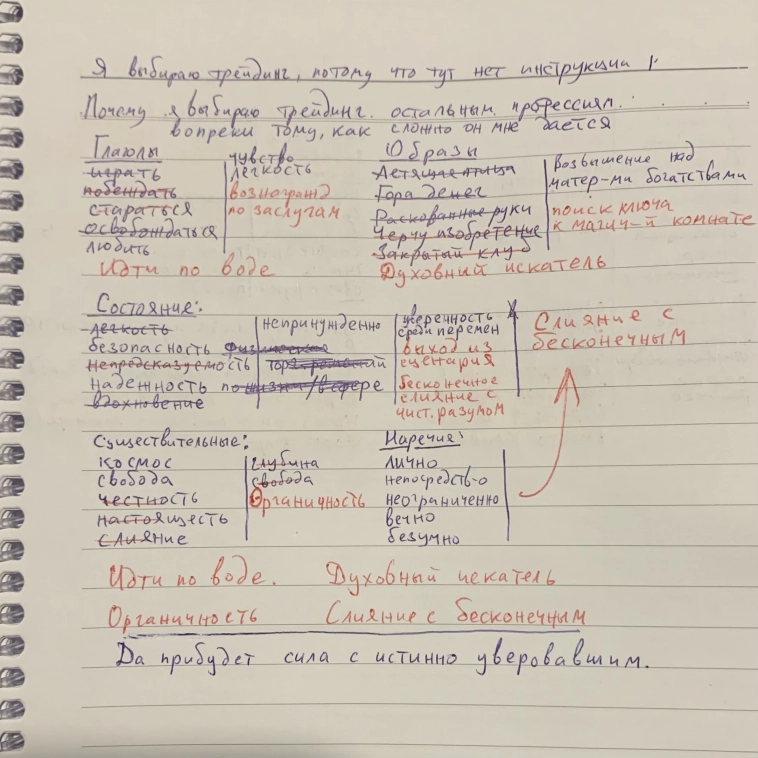 Я выбираю трейдинг, потому что тут нет инструкции !.
Почему я выбираю трейдинг остальным профессиям.
вопреки тому, как сложно он мне дается
Глаголы
играть
побеждать
стараться
освобождаться
любить
чувство
легкость
вознагражд
по заслугам
Идти по воде
Образы
Летящая птица
Гора денег
Раскованные руки
Черчу изобретение
Закрытый клуб
Духовный искатель
Возвышение над
матер-ми богатствами
поиск ключа
к магич-й комнате
Состояние:
легкость
безопасность физическая
непредсказуемость
надежность по жизни/в сфере
вдохновение
непринужденно
уверенность
среди перемен
выход из
сценария
бесконечное
слияние с
чист. разумом
Слияние с
бесконечным
Существительные:
космос
свобода
честность
настоящесть
слияние
глубина
свобода
Органичность
Наречия:
лично
непосредств-о
неограниченно
вечно
безумно
Идти по воде. Духовный искатель
Органичность Слияние с бесконечным
Да прибудет сила с истинно уверовавшим.